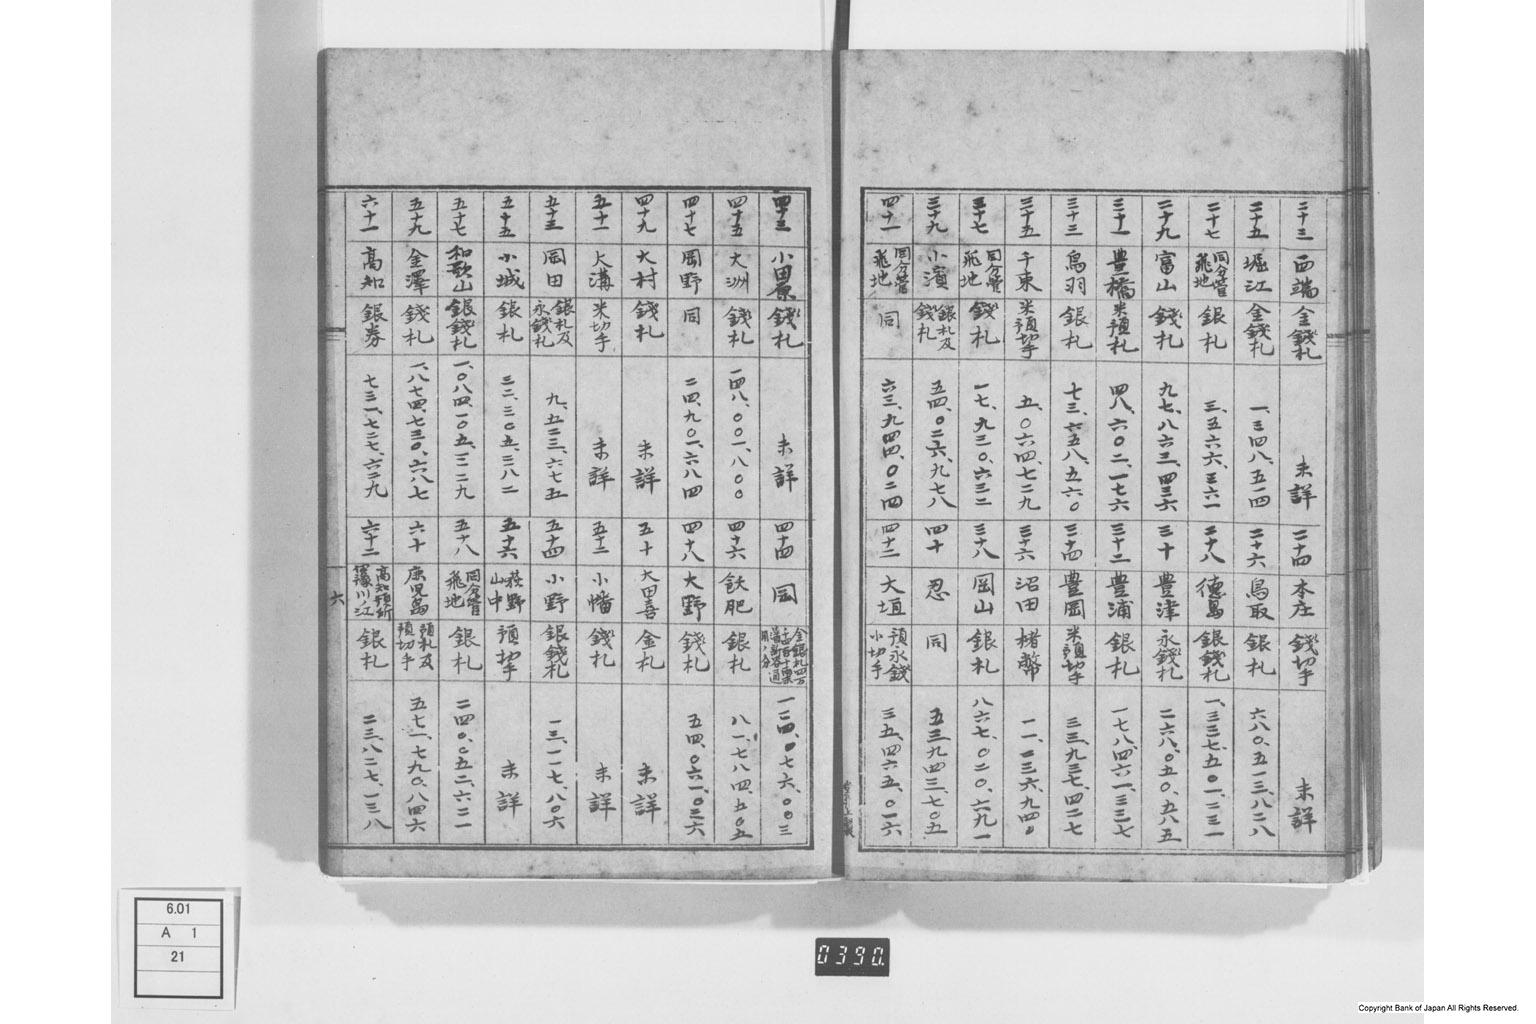 二十三 西端 金錢札 未詳 二十四 本庄 錢切手 未詳
二十五 堀江 金錢札 一、三四八、五一四 二十六 鳥取 銀札 六八〇、五一三、八二八
二十七 同分管飛地 銀札 三、五六六、三六一 二十八 德島 銀錢札 一、三三七、五〇一、二三一
二十九 富山 錢札 九七、八六三、四三六 三十 豊津 永錢札 二六八、〇五〇、五八五
三十一 豊橋 米預札 四八、六〇二、一七六 三十二 豊浦 銀札 一七八、四六一、三三七
三十三 鳥羽 銀札 七十三、六五八、五六〇 三十四 豊岡 米預切手 三三、九三七、四二七
三十五 千束 米預切手 五、〇六四、七二九 三十六 沼田 楮幣 一一、二三六、九四〇
三十七 同分管飛地 錢札 一七、九三〇、六三二 三十八 岡山 銀札 八六七、〇二〇、六九一
三十九 小濱 銀札及錢札 五四、〇二六、九七八 四十 忍 同 五三、九四三、七〇五
四十一 同分管飛地 同 六三、九四四、〇二四 四十二 大垣 預永錢小切手 三五、四六五、〇一六
四十三 小田原 錢札 未詳 四十四 同 一二四、〇七六、〇〇三
四十五 大洲 錢札 一四八、〇〇一、八〇〇 四十六 飫肥 銀札 八一、七八四、五〇五
四十七 岡野 同 二四、九〇一、六八四 四十八 大野 錢札 五四、〇六一、〇三六
四十九 大村 錢札 未詳 五十 大田喜 金札 未詳
五十一 大溝 米切手 未詳 五十二 小幡 錢札 未詳
五十三 岡田 銀札及永錢札 九、五二三、六七五 五十四 小野 銀錢札 一三、一一七、八〇六
五十五 小城 銀札 三二、三〇五、三八二 五十六 荻野山中 預切手 未詳
五十七 和歌山 銀錢札 一、〇八四、一〇五、三二九 五十八 同分管飛地 銀札 二四〇、〇五二、六二一
五十九 金澤 錢札 一、八七四、七三〇、六八七 六十 鹿児島 預札及預切手 五七一、七九〇、八四六
六十一 高知 銀券 七三一、七二七、六二九 六十二 高知預所伊豫川ノ江 銀札 二三、八二七、一三八
六
6.01
A 1
21
0390.
Copyright Bank of Japan All Rights Reserved.